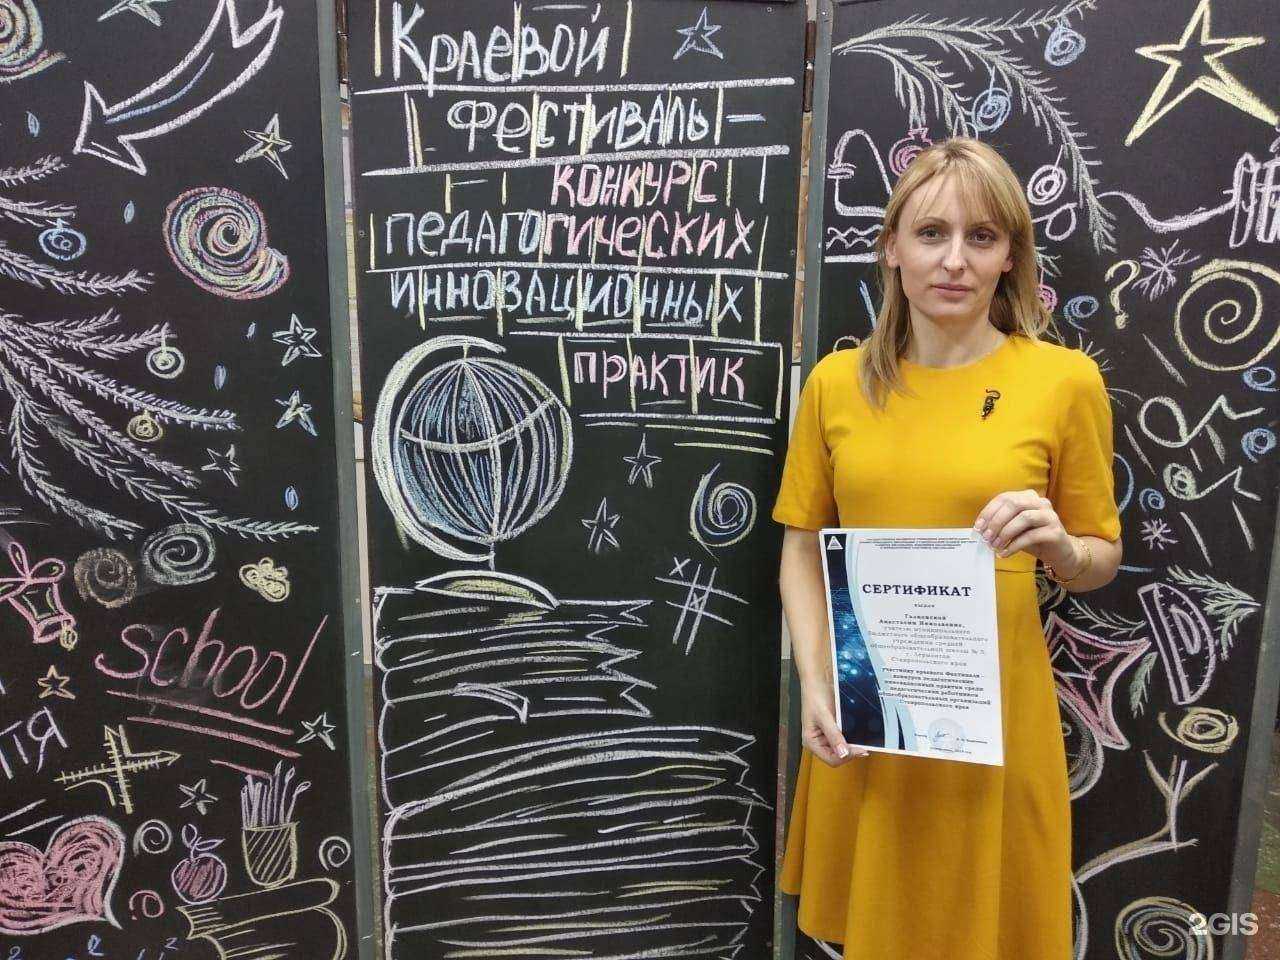 Краевой
Фестиваль -
конкурс
педагогических
инновационных
практик
school
СЕРТИФИКАТ
выдан
Анастасии Николаевне,
учителю муниципального
бюджетного общеобразовательного
учреждения средней
общеобразовательной школы № 5,
г. Лермонтов
Ставропольского края
участнику краевого Фестиваля -
конкурса педагогических
инновационных практик среди
педагогических работников
общеобразовательных организаций
Ставропольского края
2GIS